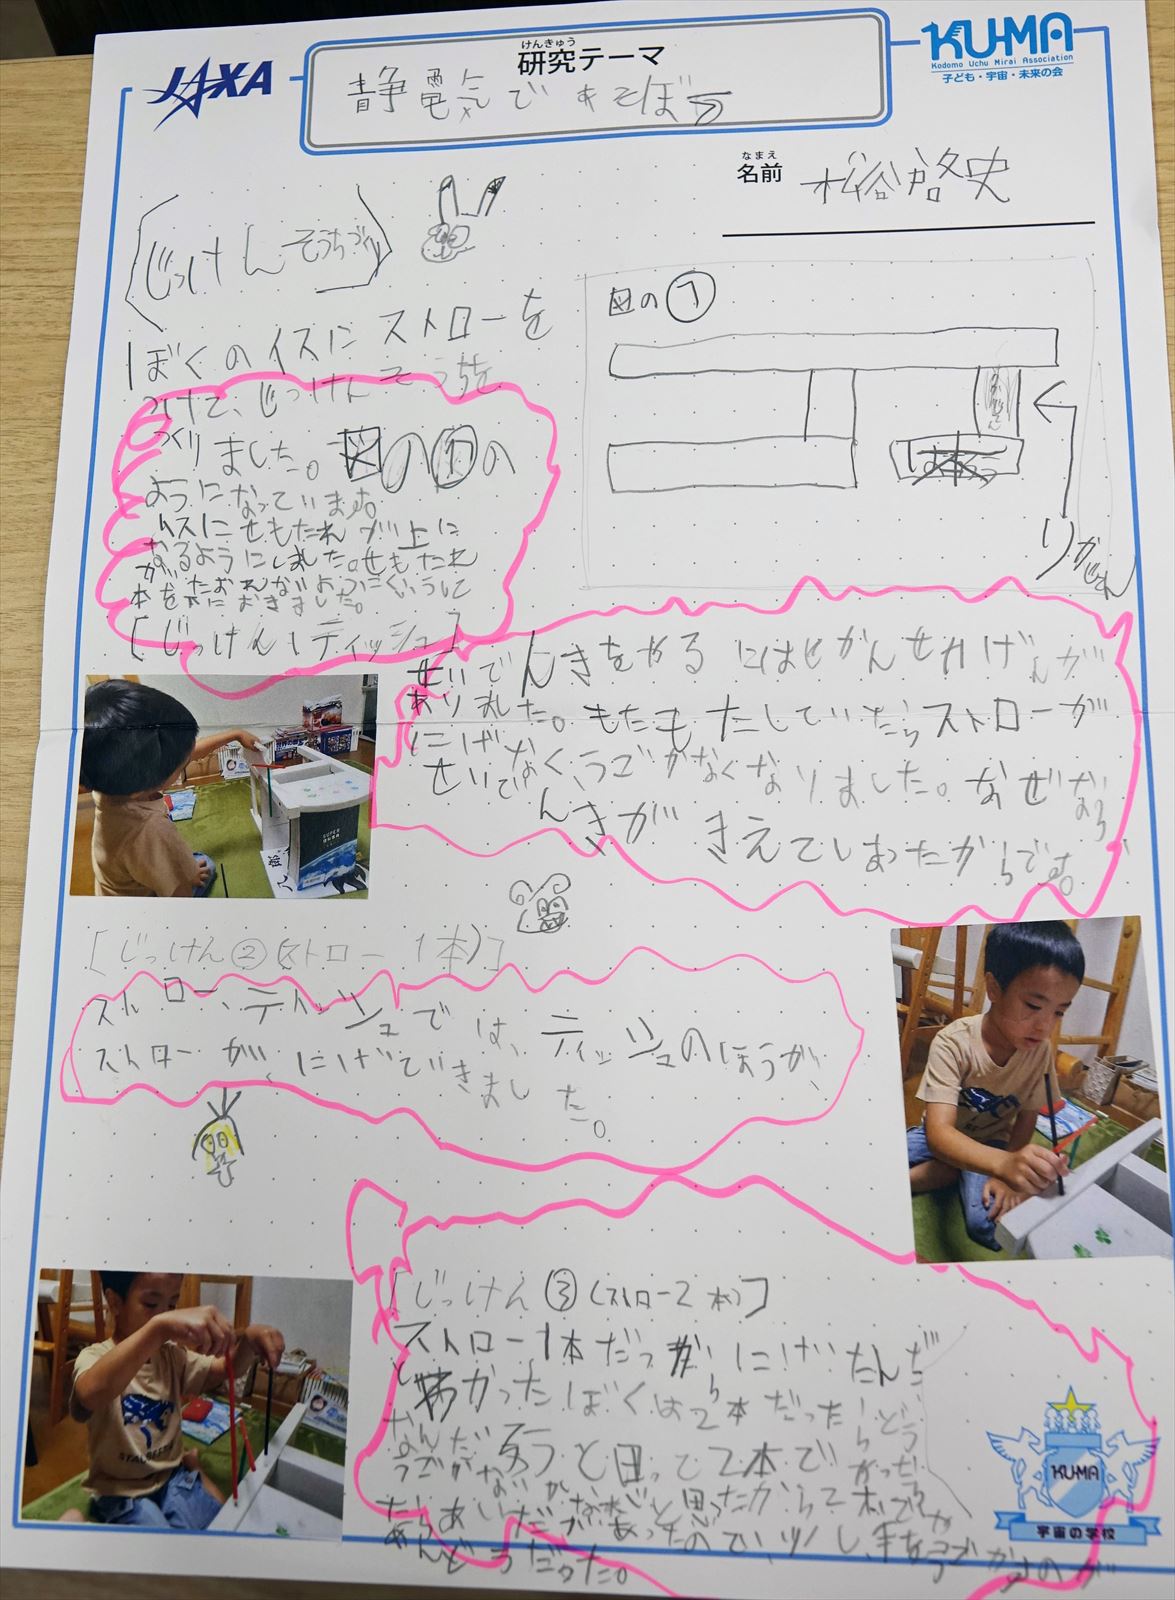 JAXA
けんきゅう
研究テーマ
静電気であそぼう
KU-MA
Kodomo Uchu Mirai Association
子ども・宇宙・未来の会
なまえ
名前
松谷啓史
じっけんそうちづくり
ぼくのイスにストローを
つけて、じっけんそうちを
つくりました。図の①の
ようになっています。
イスにせもたれが上に
なるようにしました。せもたれ
がたおれないようにくふうして
本を下におきました。
図の①
りかじてん
[じっけん1ティッシュ]
せいでんきをやるにはせかんせいげんが
ありました。もたもたしていたらストローが
にげなく、うごかなくなりました。なぜなら
せいでんきがきえてしまったからです。
SUPER
[じっけん②(ストロー1本)]
ストロー、ティッシュでは、ティッシュのほうが、
ストローが、にげてきました。
[じっけん③(ストロー2本)]
ストロー1本だっがにげたんだ
わかったぼくは2本だったらどう
なんだろうと思って2本でやった
KU-MA
宇宙の学校